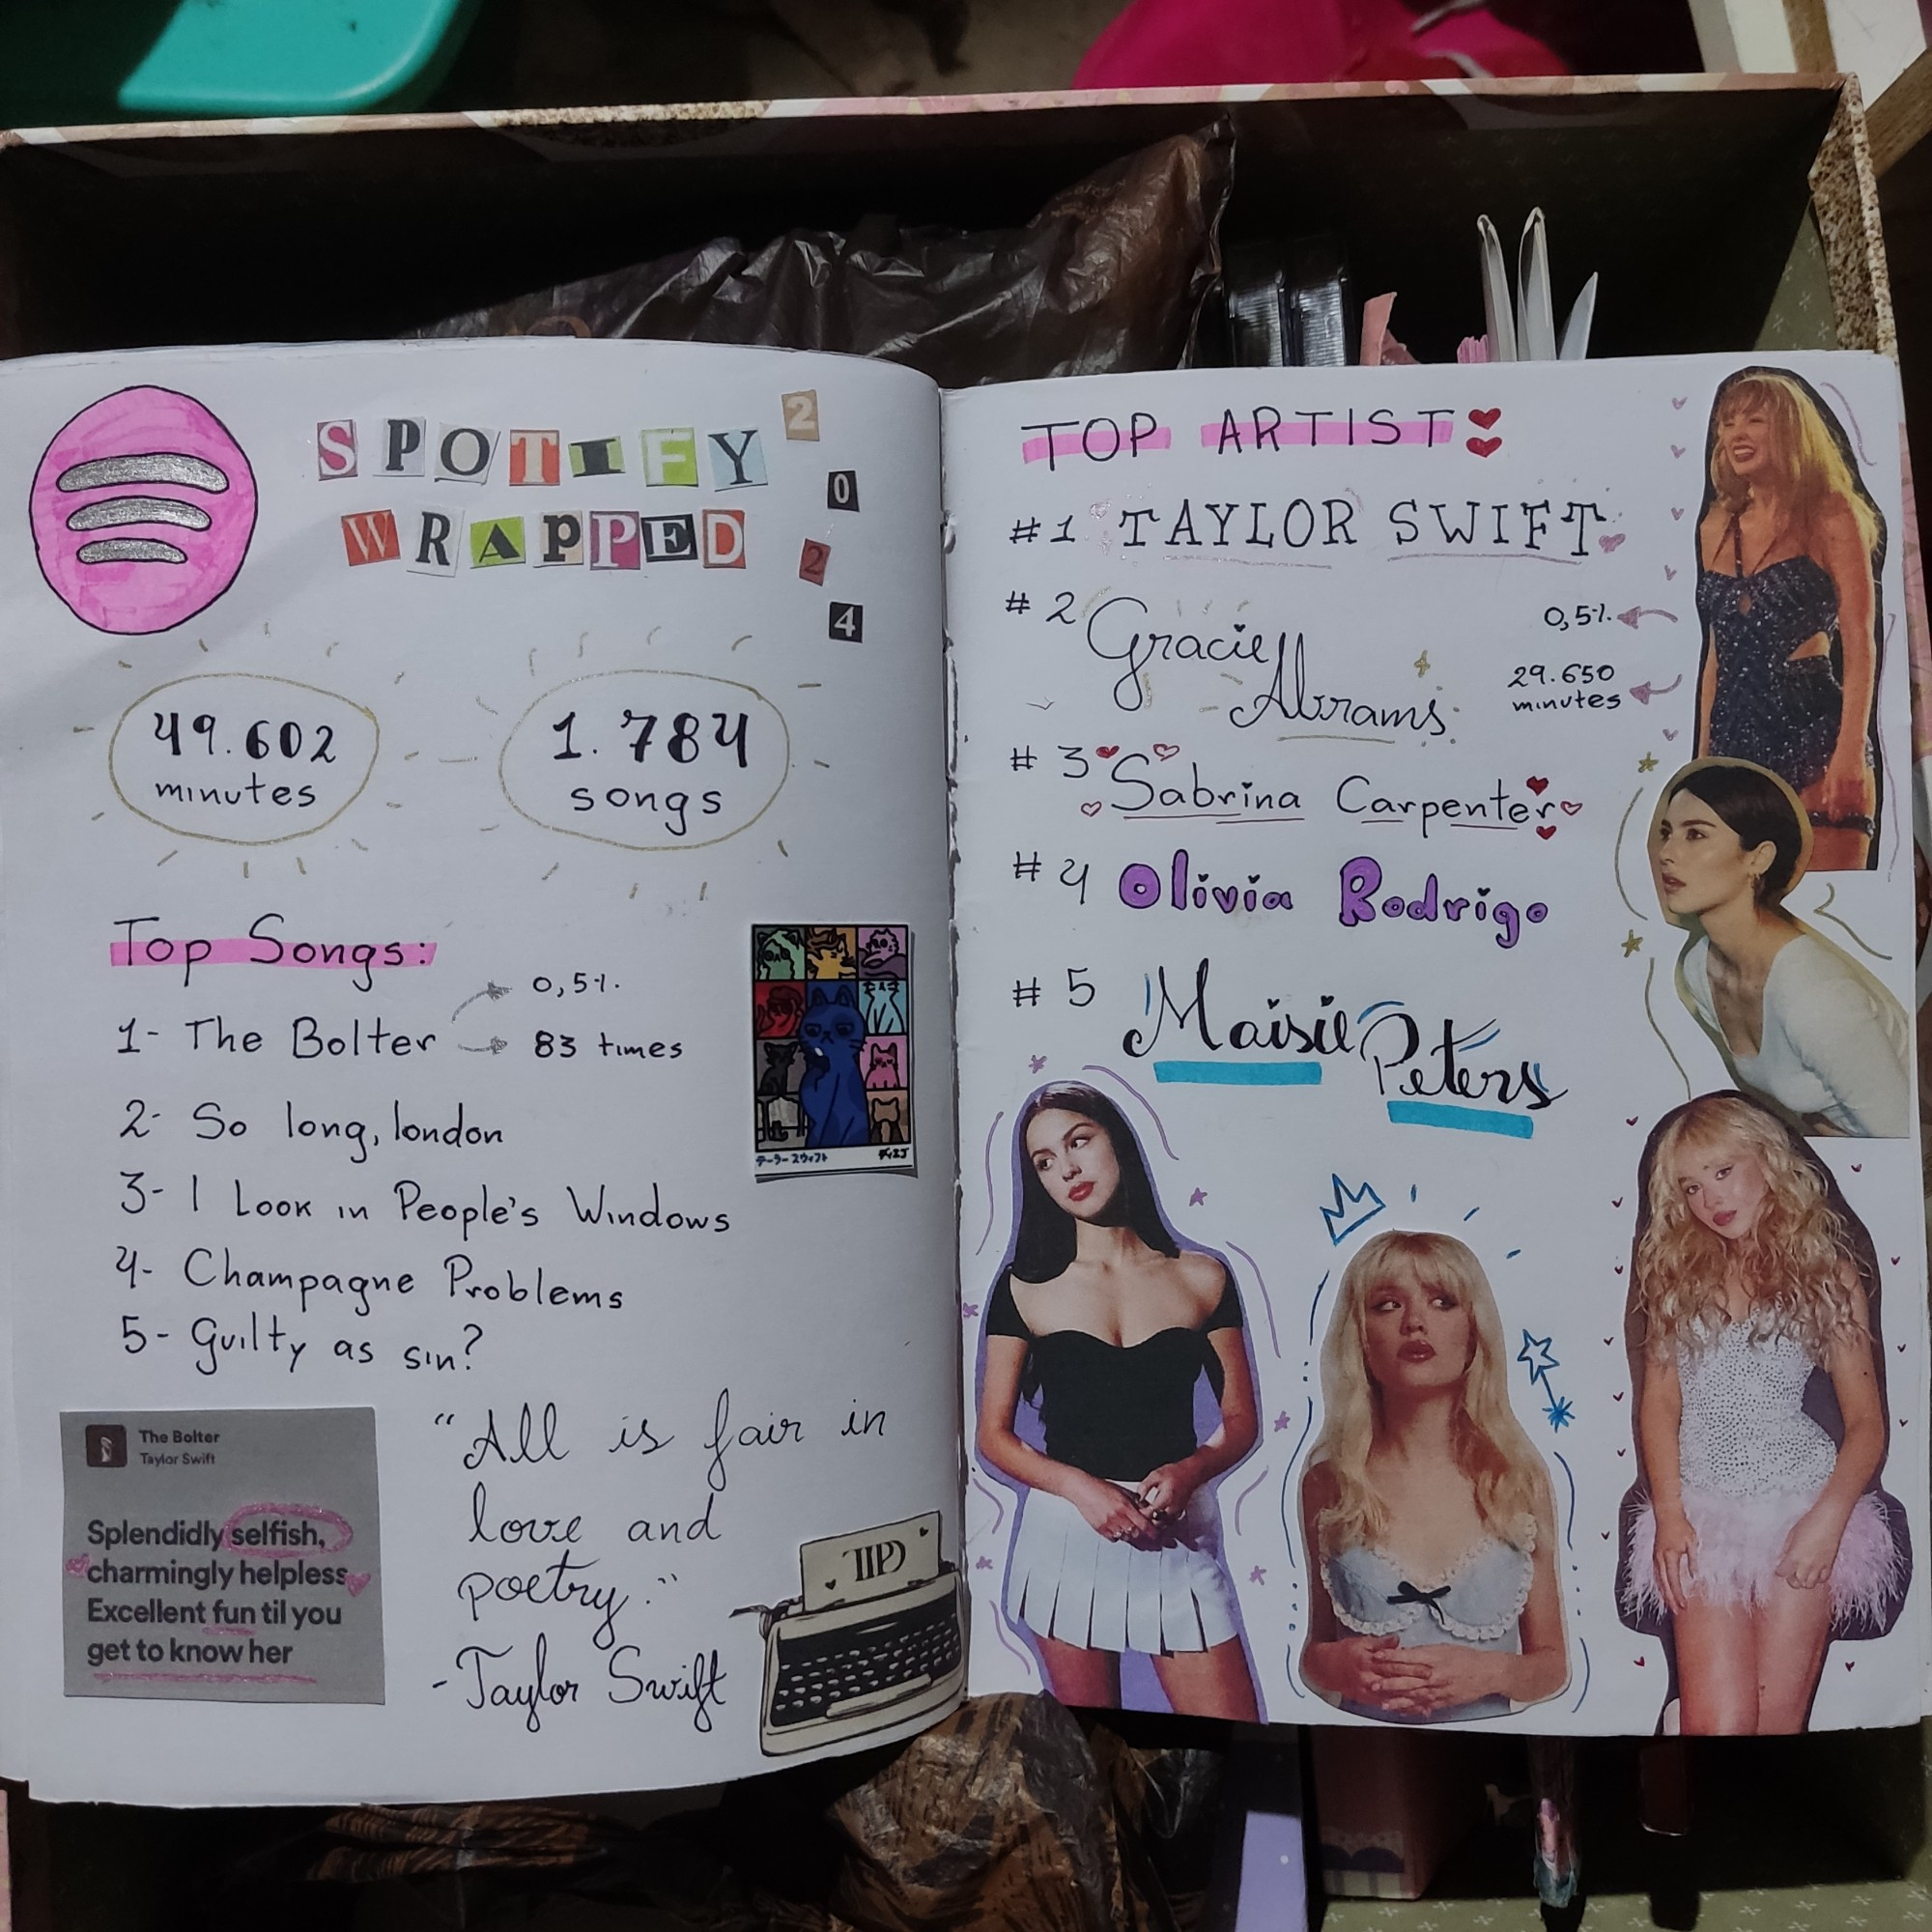 SPOTIFY
WRAPPED
2
0
2
4
49.602
minutes
1.784
songs
Top Songs:
1- The Bolter
0,5%.
83 times
2- So long, london
3- I Look in People's Windows
4- Champagne Problems
5- Guilty as sin?
テーラースウィフト
The Bolter
Taylor Swift
Splendidly selfish,
charmingly helpless
Excellent fun til you
get to know her
"All is fair in
love and
poetry."
-Taylor Swift
TTPD
TOP ARTIST
#1 TAYLOR SWIFT
0,5%.
29.650
minutes
#2 Gracie
Abrams
#3 Sabrina Carpenter
#4 Olivia Rodrigo
#5 Maisie
Peters